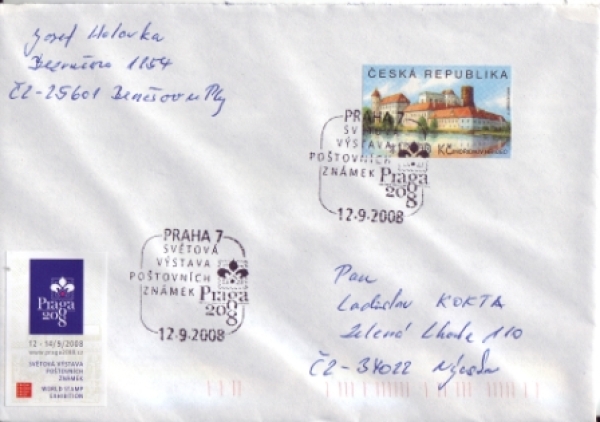 Josef
1154
ČZ-25601 Benešov u Phy
ČESKÁ REPUBLIKA
Kč
PRAHA 7
SVĚTOVÁ
VÝSTAVA
POŠTOVNÍCH
ZNÁMEK
Praga
2008
12-9-2008
PRAHA 7
SVĚTOVÁ
VÝSTAVA
POŠTOVNÍCH
ZNÁMEK
Praga
2008
12-9-2008
Pan
Ladislav KOKTA
Zelená Lhota 110
ČZ-34022 Nýrsko
Praga
2008
12 - 14/9/2008
www.praga2008.cz
SVĚTOVÁ VÝSTAVA
POŠTOVNÍCH
ZNÁMEK
WORLD STAMP
EXHIBITION